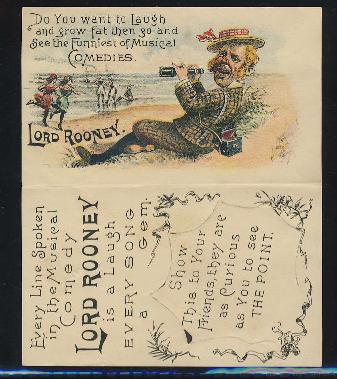 "Do You want to Laugh
"and grow fat then go and
See the Funniest of Musical
COMEDIES.
LORD ROONEY.
Every Line Spoken
in the Musical
Comedy
LORD ROONEY
is a Laugh
EVERY SONG
a
Gem.
Show
This to Your
Friends, they are
as Curious
as You to see
THE POINT.